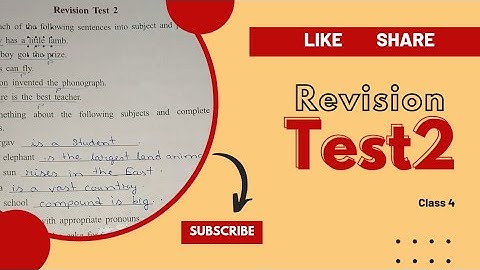 Revision Test 2
ach of the following sentences into subject and p
y has a little lamb.
boy got the prize.
s can fly.
on invented the phonograph.
re is the best teacher.
mething about the following subjects and complete
s.
rgav is a student
elephant is the largest land anima
sun rises in the East.
a is a vast country.
school compound is big.
with appropriate pronouns
LIKE SHARE
Revision
Test2
Class 4
SUBSCRIBE